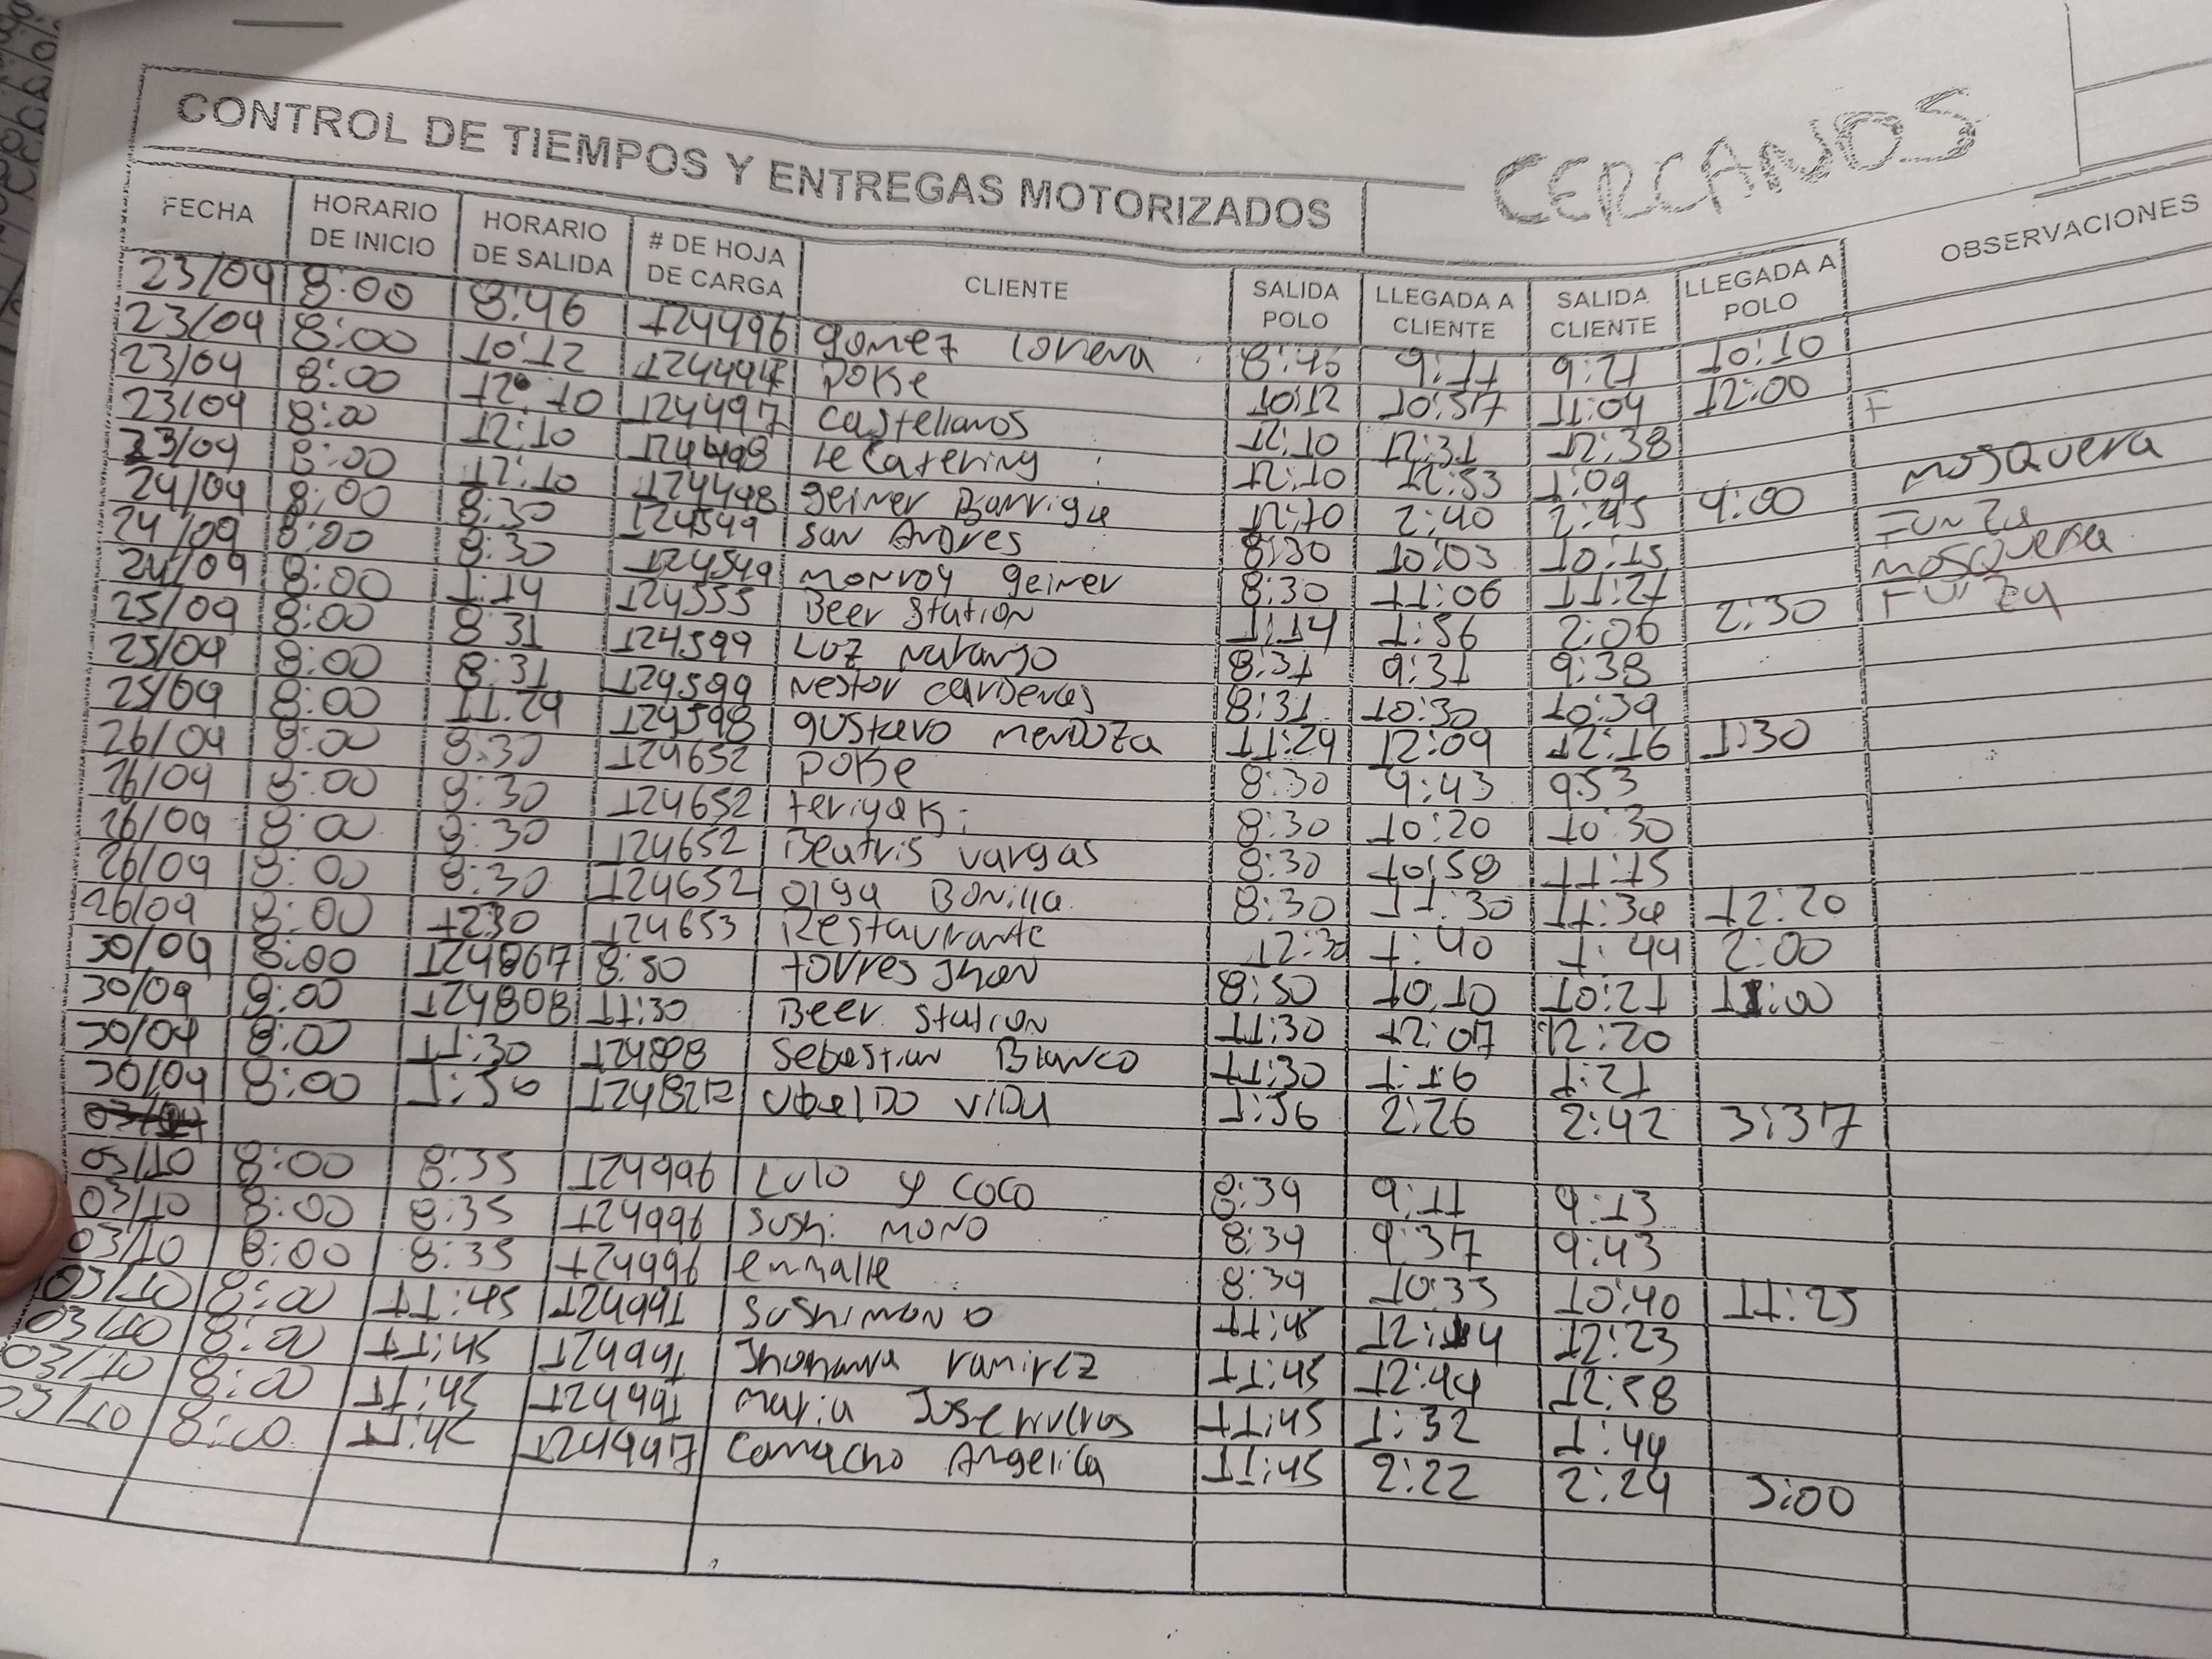 CONTROL DE TIEMPOS Y ENTREGAS MOTORIZADOS CERCANOS
FECHA HORARIO DE INICIO HORARIO DE SALIDA # DE HOJA DE CARGA CLIENTE SALIDA POLO LLEGADA A CLIENTE SALIDA CLIENTE LLEGADA A POLO OBSERVACIONES
23/09 8:00 8:46 124496 gomez Lorena 8:46 9:11 9:21 10:10
23/09 8:00 10:12 POKe 10:12 10:57 11:04 12:00
23/09 8:00 12:10 124497 Castellanos 12:10 12:31 12:38 F
23/09 8:00 12:10 124498 le Catering 12:10 12:53 1:09
23/09 8:00 12:10 124498 geiner Barriga 12:10 2:40 2:45 4:00 MOSQUERA
24/09 8:00 8:30 124549 San Andres 8:30 10:03 10:15 Funza
24/09 8:00 8:30 124549 monroy geiner 8:30 11:06 11:21 Mosquera
24/09 8:00 1:14 124555 Beer Station 1:14 1:56 2:06 2:30 Funza
25/09 8:00 8:31 124599 Luz naranjo 8:31 9:31 9:38
25/09 8:00 8:31 124599 Nestor cardenas 8:31 10:30 10:39
25/09 8:00 11:24 124598 gustavo Mendoza 11:24 12:09 12:16 1:30
26/09 8:00 8:30 124652 POKe 8:30 9:43 9:53
26/09 8:00 8:30 124652 teriyaki 8:30 10:20 10:30
26/09 8:00 8:30 124652 Beatris vargas 8:30 10:58 11:15
26/09 8:00 8:30 124652 Olga Bonilla 8:30 11:30 11:34 12:20
26/09 8:00 1230 124653 Restaurante 12:30 1:40 1:44 2:00
30/09 8:00 8:50 torres Jhon 8:50 10:10 10:21 11:00
30/09 8:00 124808 11:30 Beer Station 11:30 12:07 12:20
30/09 8:00 11:30 Sebastian Blanco 11:30 1:16 1:21
30/09 8:00 1:56 Ubaldo vida 1:56 2:26 2:42 3:37
03/10 8:00 8:35 124996 Lulo y COCO 8:39 9:11 9:13
03/10 8:00 8:35 124996 Sushi MONO 8:39 9:37 9:43
03/10 8:00 8:35 124996 enhalle 8:39 10:35 10:40 11:25
03/10 8:00 11:45 SUSHIMONO 11:45 12:14 12:23
03/10 8:00 11:45 Jhohana ramirez 11:45 12:44 12:58
03/10 8:00 11:45 Maria Jose riveros 11:45 1:32 1:44
03/10 8:00 11:45 Camacho Angelica 11:45 2:22 2:24 3:00